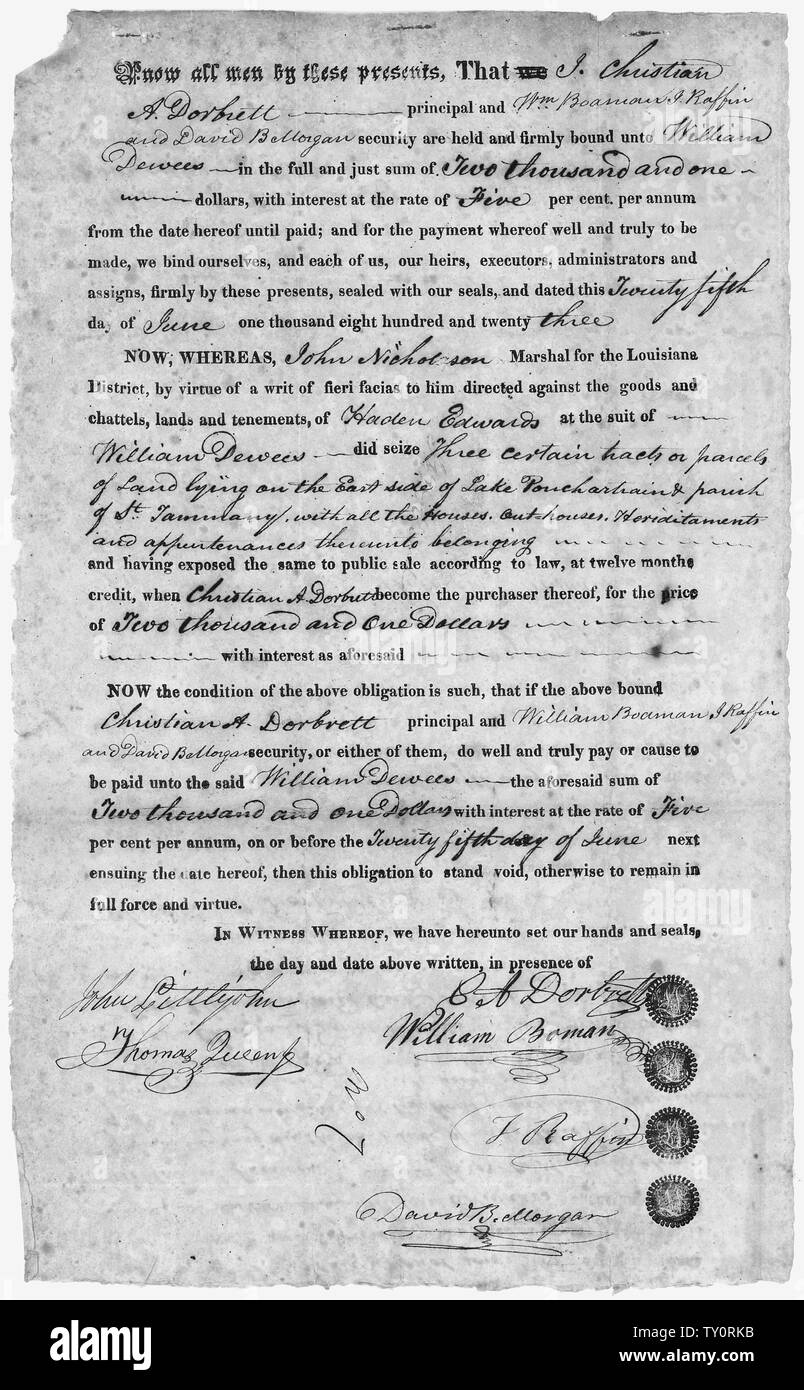 Know all men by these presents, That we I. Christian
A. Dorbrett principal and Wm Boaman J Raffin
and David B Morgan security are held and firmly bound unto William
Dewees in the full and just sum of Two thousand and one
dollars, with interest at the rate of Five per cent. per annum
from the date hereof until paid; and for the payment whereof well and truly to be
made, we bind ourselves, and each of us, our heirs, executors, administrators and
assigns, firmly by these presents, sealed with our seals, and dated this Twenty fifth
day of June one thousand eight hundred and twenty three
NOW, WHEREAS, John Nicholson Marshal for the Louisiana
District, by virtue of a writ of fieri facias to him directed against the goods and
chattels, lands and tenements, of Haden Edwards at the suit of
William Dewees did seize Three certain tracts or parcels
of Land lying on the East side of Lake Poncharhain & parish
of St. Tammany, with all the Houses. Out houses. Heriditaments
and appurtenances thereunto belonging
and having exposed the same to public sale according to law, at twelve months
credit, when Christian A. Dorbrett become the purchaser thereof, for the price
of Two thousand and One Dollars
with interest as aforesaid
NOW the condition of the above obligation is such, that if the above bound
Christian A. Dorbrett principal and William Boaman J Raffin
and David B Morgan security, or either of them, do well and truly pay or cause to
be paid unto the said William Dewees the aforesaid sum of
Two thousand and one Dollars with interest at the rate of Five
per cent per annum, on or before the Twenty fifth day of June next
ensuing the date hereof, then this obligation to stand void, otherwise to remain in
full force and virtue.
IN WITNESS WHEREOF, we have hereunto set our hands and seals,
the day and date above written, in presence of
John Littlejohn
C A Dorbrett
William Boman
Thomas Queen
J Raffin
David B. Morgan
alamy
Image ID: TY0RKB
www.alamy.com